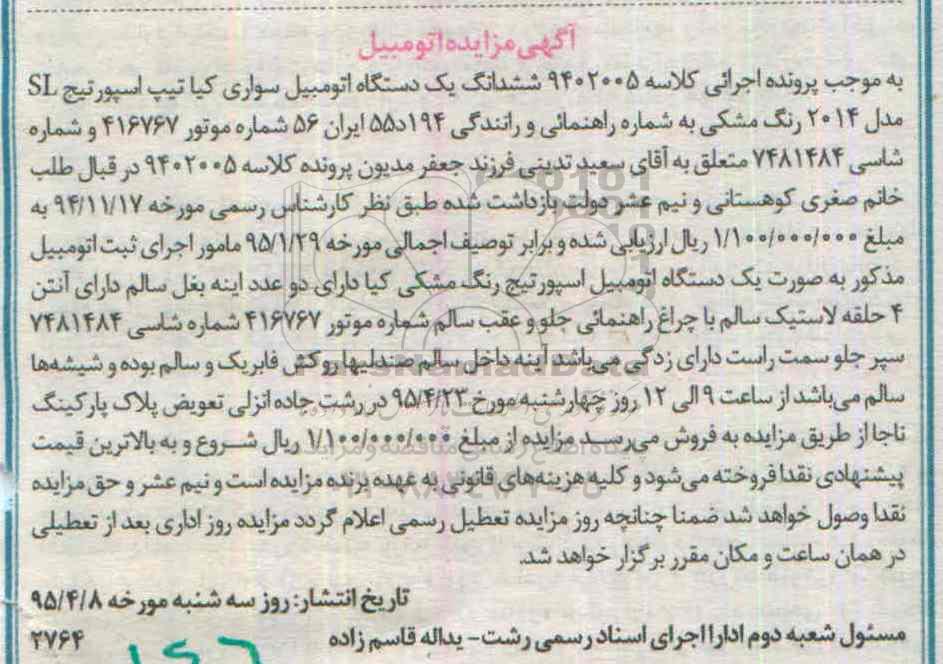 آگهی مزایده اتومبیل
به موجب پرونده اجرائی کلاسه ۹۴۰۲۰۰۵ ششدانگ یک دستگاه اتومبیل سواری کیا تیپ اسپورتیج SL
مدل ۲۰۱۴ رنگ مشکی به شماره راهنمائی و رانندگی ۱۹۴د۵۵ ایران ۵۶ شماره موتور ۴۱۶۷۶۷ و شماره
شاسی ۷۴۸۱۴۸۴ متعلق به آقای سعید تدینی فرزند جعفر مدیون پرونده کلاسه ۹۴۰۲۰۰۵ در قبال طلب
خانم صغری کوهستانی و نیم عشر دولت بازداشت شده طبق نظر کارشناس رسمی مورخه ۹۴/۱۱/۱۷ به
مبلغ ۱/۱۰۰/۰۰۰/۰۰۰ ریال ارزیابی شده و برابر توصیف اجمالی مورخه ۹۵/۱/۲۹ مامور اجرای ثبت اتومبیل
مذکور به صورت یک دستگاه اتومبیل اسپورتیج رنگ مشکی کیا دارای دو عدد اینه بغل سالم دارای آنتن
۴ حلقه لاستیک سالم با چراغ راهنمائی جلو و عقب سالم شماره موتور ۴۱۶۷۶۷ شماره شاسی ۷۴۸۱۴۸۴
سپر جلو سمت راست دارای زدگی می‌باشد آینه داخل سالم صندلیها روکش فابریک و سالم بوده و شیشه‌ها
سالم می‌باشد از ساعت ۹ الی ۱۲ روز چهارشنبه مورخ ۹۵/۴/۲۳ در رشت جاده انزلی تعویض پلاک پارکینگ
ناجا از طریق مزایده به فروش می‌رسد مزایده از مبلغ ۱/۱۰۰/۰۰۰/۰۰۰ ریال شروع و به بالاترین قیمت
پیشنهادی نقدا فروخته می‌شود و کلیه هزینه‌های قانونی به عهده برنده مزایده است و نیم عشر و حق مزایده
نقدا وصول خواهد شد ضمنا چنانچه روز مزایده تعطیل رسمی اعلام گردد مزایده روز اداری بعد از تعطیلی
در همان ساعت و مکان مقرر برگزار خواهد شد.
تاریخ انتشار: روز سه شنبه مورخه ۹۵/۴/۸
مسئول شعبه دوم ادارا اجرای اسناد رسمی رشت- یداله قاسم زاده ۲۷۶۴